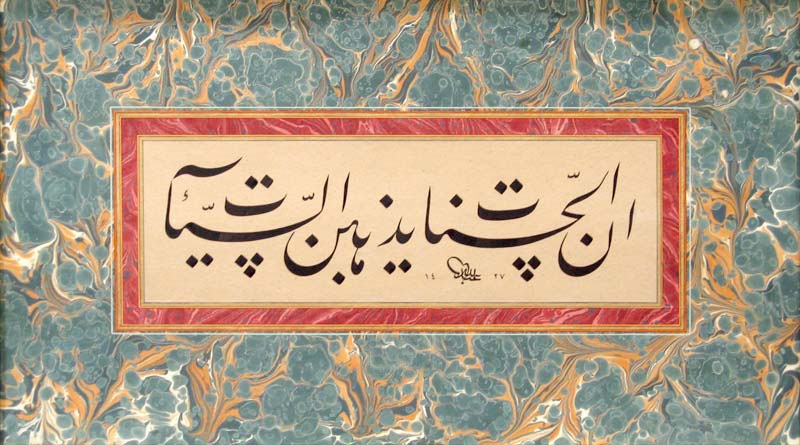 ان الحسنات يذهبن السيئات
١٤ ٢٧